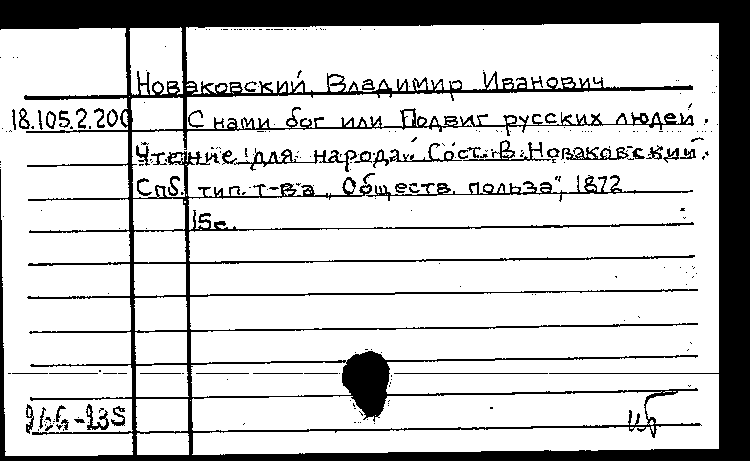 Новаковский, Владимир Иванович
18.105.2.200 С нами бог или Подвиг русских людей.
Чтение для народа. Сост. В. Новаковский.
Спб. тип. т-ва „Обществ. польза", 1872
15с.